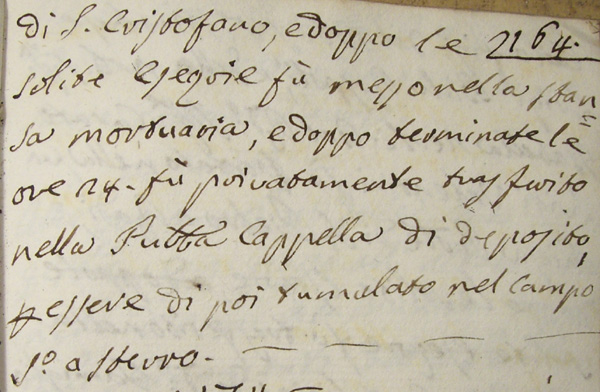 di S. Cristofano, e doppo le 2164.
solite Esequie fù messo nella stan=
sa mortuaria, e doppo terminate le
ore 24. fù privatamente trasferito
nella Pubbca Cappella di deposito,
p essere di poi tumulato nel Campo
So a sterro.